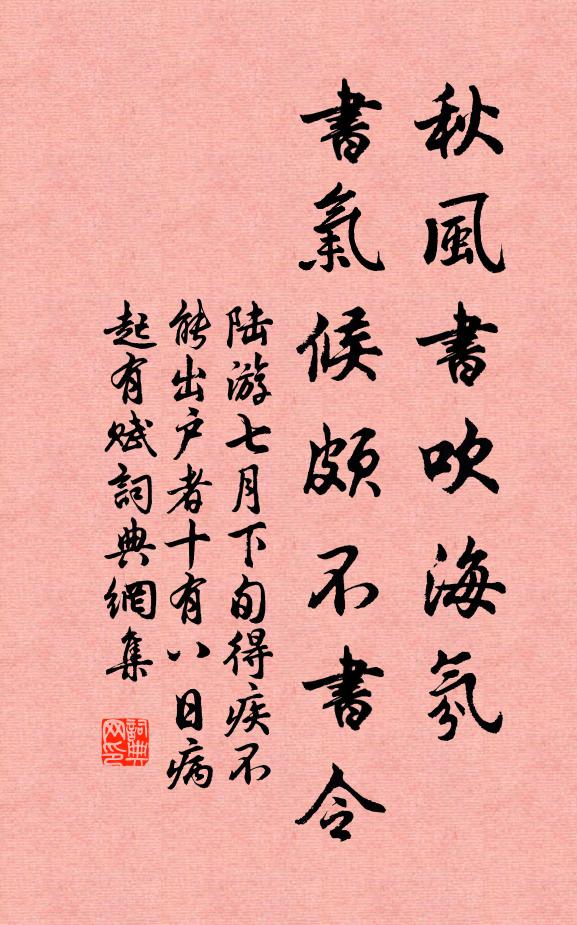 秋風書吹海氛
書氣候頗不書令
陆游七月下旬得疾不
能出户者十有八日病
起有赋詞典網集
詞典网印